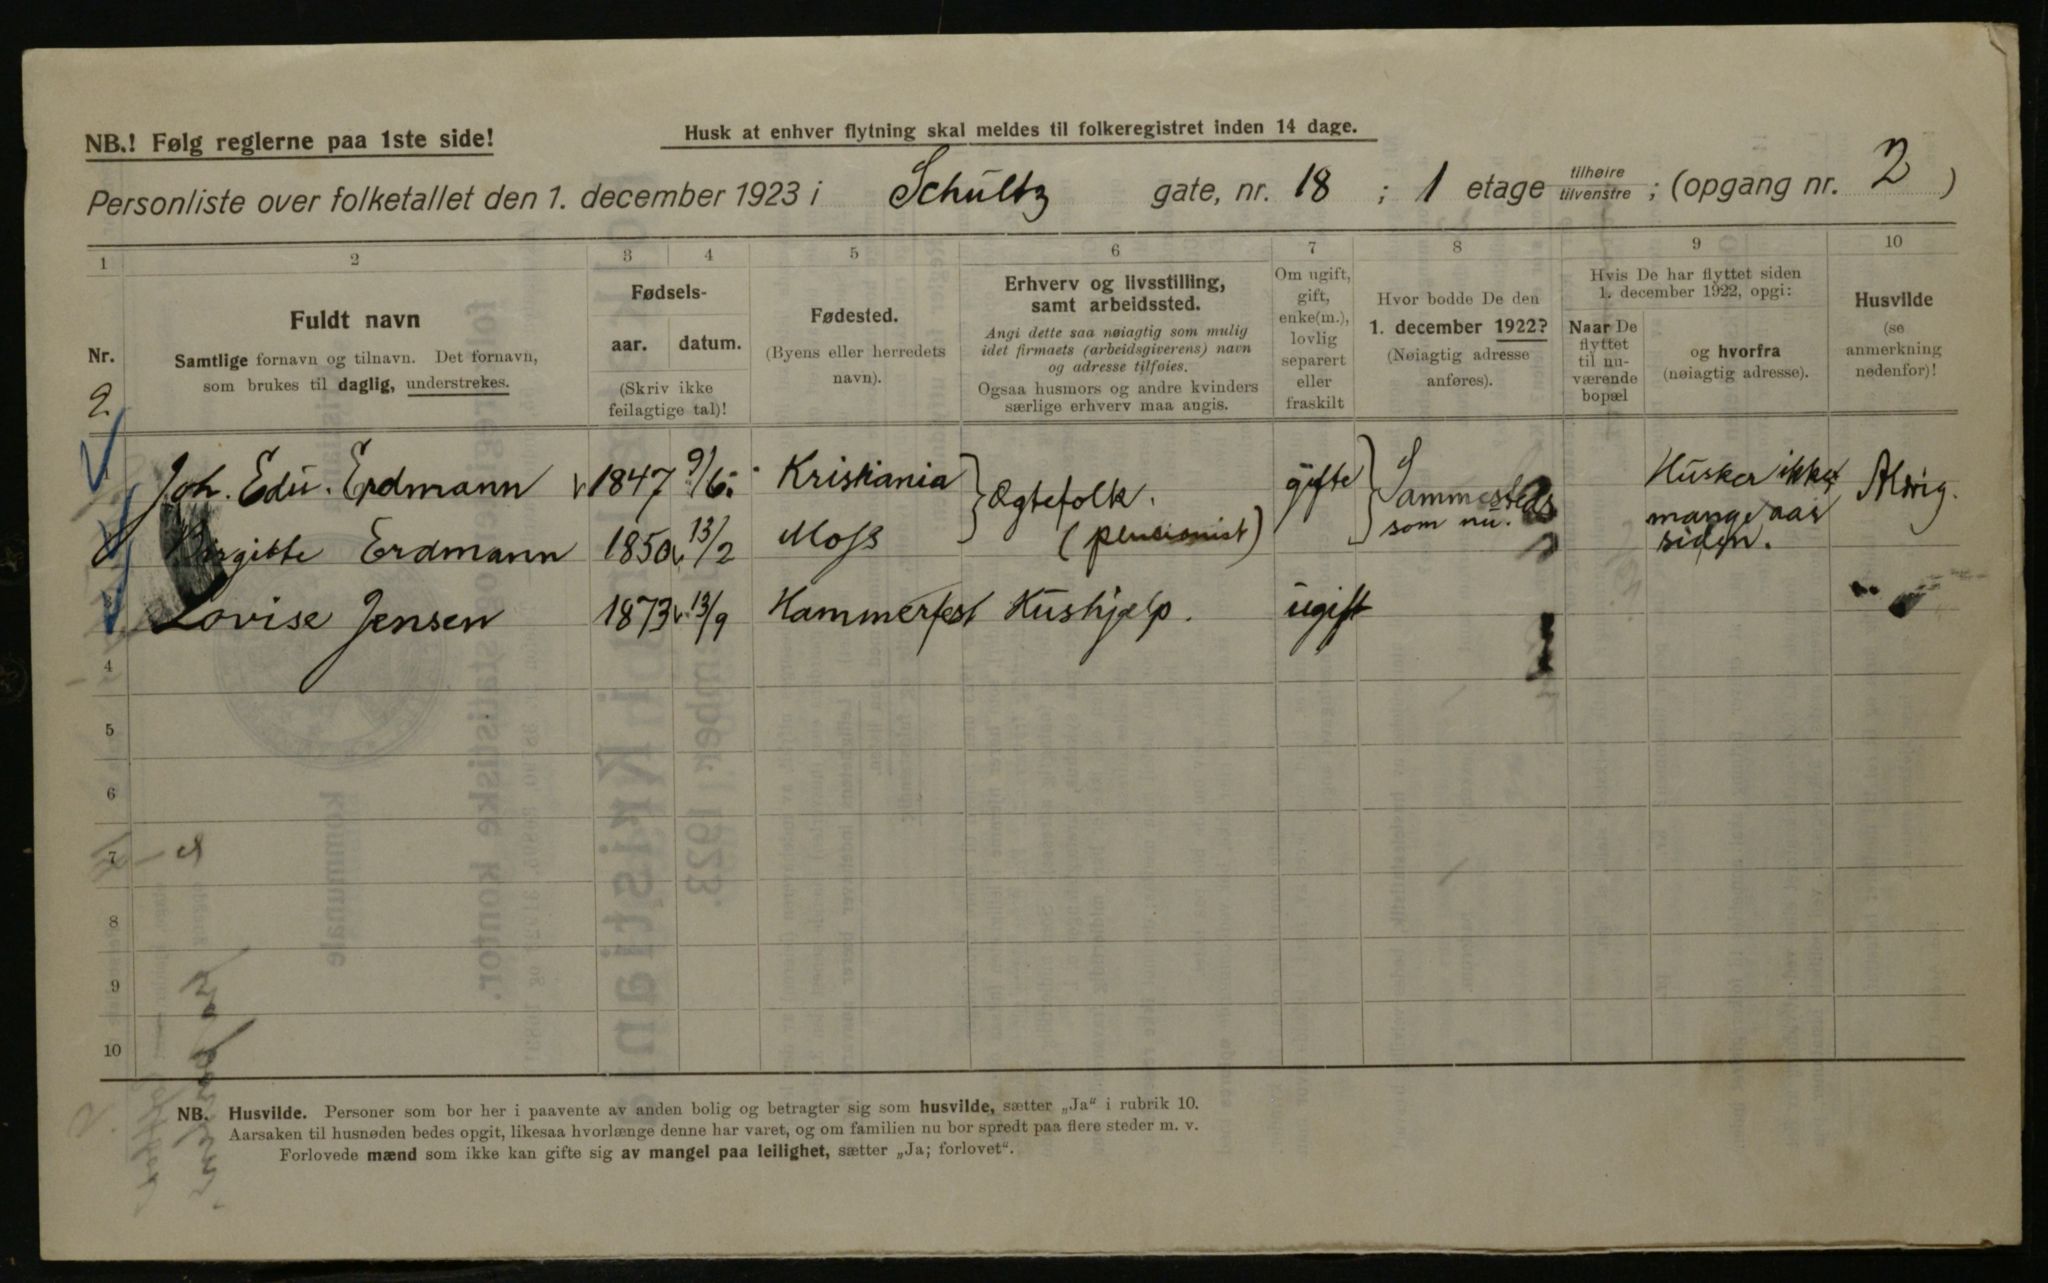 NB.! Følg reglerne paa 1ste side!
Husk at enhver flytning skal meldes til folkeregistret inden 14 dage.
Personliste over folketallet den 1. december 1923 i Schultz gate, nr. 18 ; 1 etage tilhøire tilvenstre ; (opgang nr. 2 )
1 2 3 4 5 6 7 8 9 10
Nr.
2.
Fuldt navn
Samtlige fornavn og tilnavn. Det fornavn,
som brukes til daglig, understrekes.
Fødsels-
aar. datum.
(Skriv ikke
feilagtige tal)!
Fødested.
(Byens eller herredets
navn).
Erhverv og livsstilling,
samt arbeidssted.
Angi dette saa nøiagtig som mulig
idet firmaets (arbeidsgiverens) navn
og adresse tilføies.
Ogsaa husmors og andre kvinders
særlige erhverv maa angis.
Om ugift,
gift,
enke(m.),
lovlig
separert
eller
fraskilt
Hvor bodde De den
1. december 1922?
(Nøiagtig adresse
anføres).
Hvis De har flyttet siden
1. december 1922, opgi:
Naar De
flyttet
til nu-
værende
bopæl
og hvorfra
(nøiagtig adresse).
Husvilde
(se
anmerkning
nedenfor)!
Joh. Edu. Erdmann 1847 9/6. Kristiania } Ægtefolk. gifte } Sammesteds Husker ikke Aldrig.
Birgitte Erdmann 1850 13/2 Moss (pensionist) som nu. mange aar
siden.
Lovise Jensen 1873 13/9 Hammerfest Hushjælp. ugift
4
5
6
7
8
9
10
NB. Husvilde. Personer som bor her i paavente av anden bolig og betragter sig som husvilde, sætter „Ja“ i rubrik 10.
Aarsaken til husnøden bedes opgit, likesaa hvorlænge denne har varet, og om familien nu bor spredt paa flere steder m. v.
Forlovede mænd som ikke kan gifte sig av mangel paa leilighet, sætter „Ja; forlovet“.